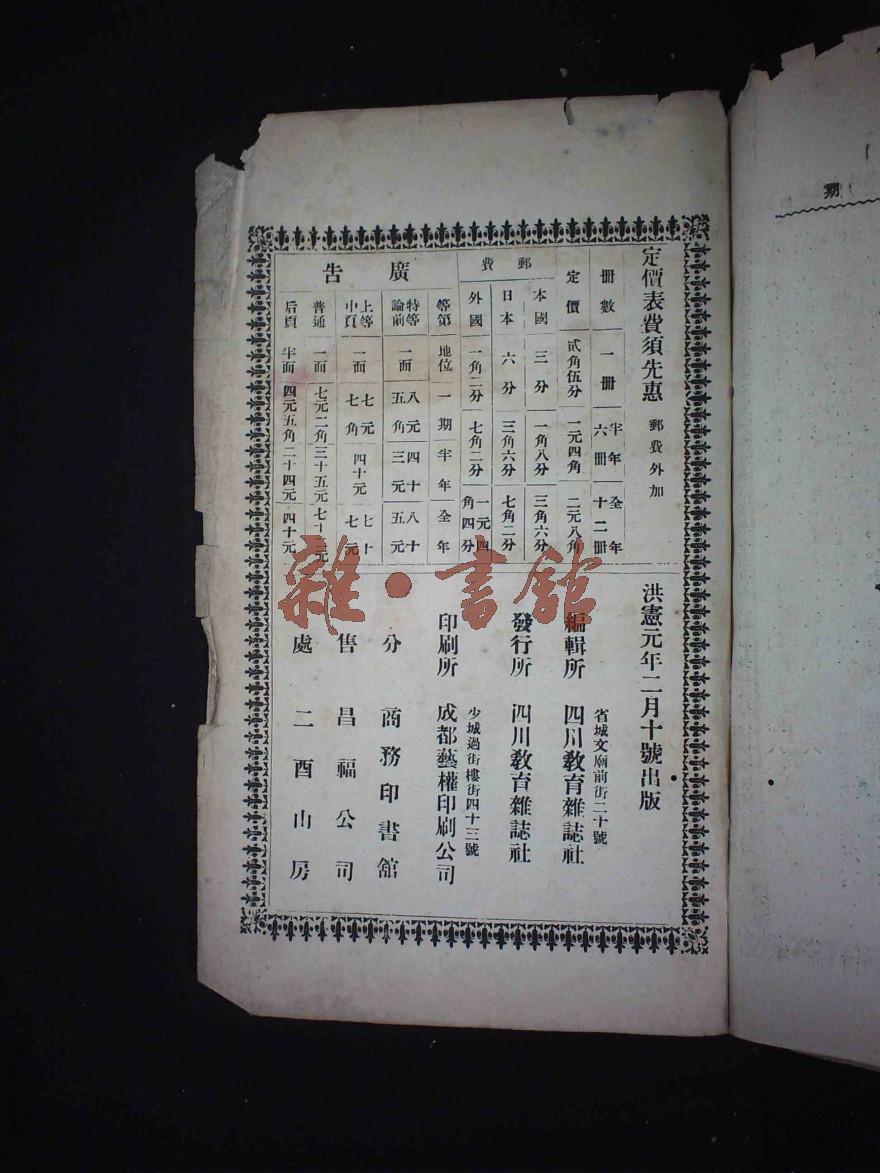 定價表費須先惠 郵費外加
册數 一册 半年六册 全年十二册
定價 貳角伍分 一元四角 二元八角
郵費
本國 三分 一角八分 三角六分
日本 六分 三角六分 七角二分
外國 一角二分 七角二分 一元四角四分
廣告
等第 地位 一期 半年 全年
特等論前 一面 八元五角 四十三元 八十五元
上等中頁 一面 七元七角 四十元 七十七元
普通 一面 七元二角 三十五元 七十二元
后頁 半面 四元五角 二十四元 四十元
洪憲元年二月十號出版
省城文廟前街二十號
編輯所 四川教育雜誌社
發行所 四川教育雜誌社
少城過街樓街四十三號
印刷所 成都藝權印刷公司
分售處
商務印書舘
昌福公司
二酉山房
期
雜·書舘